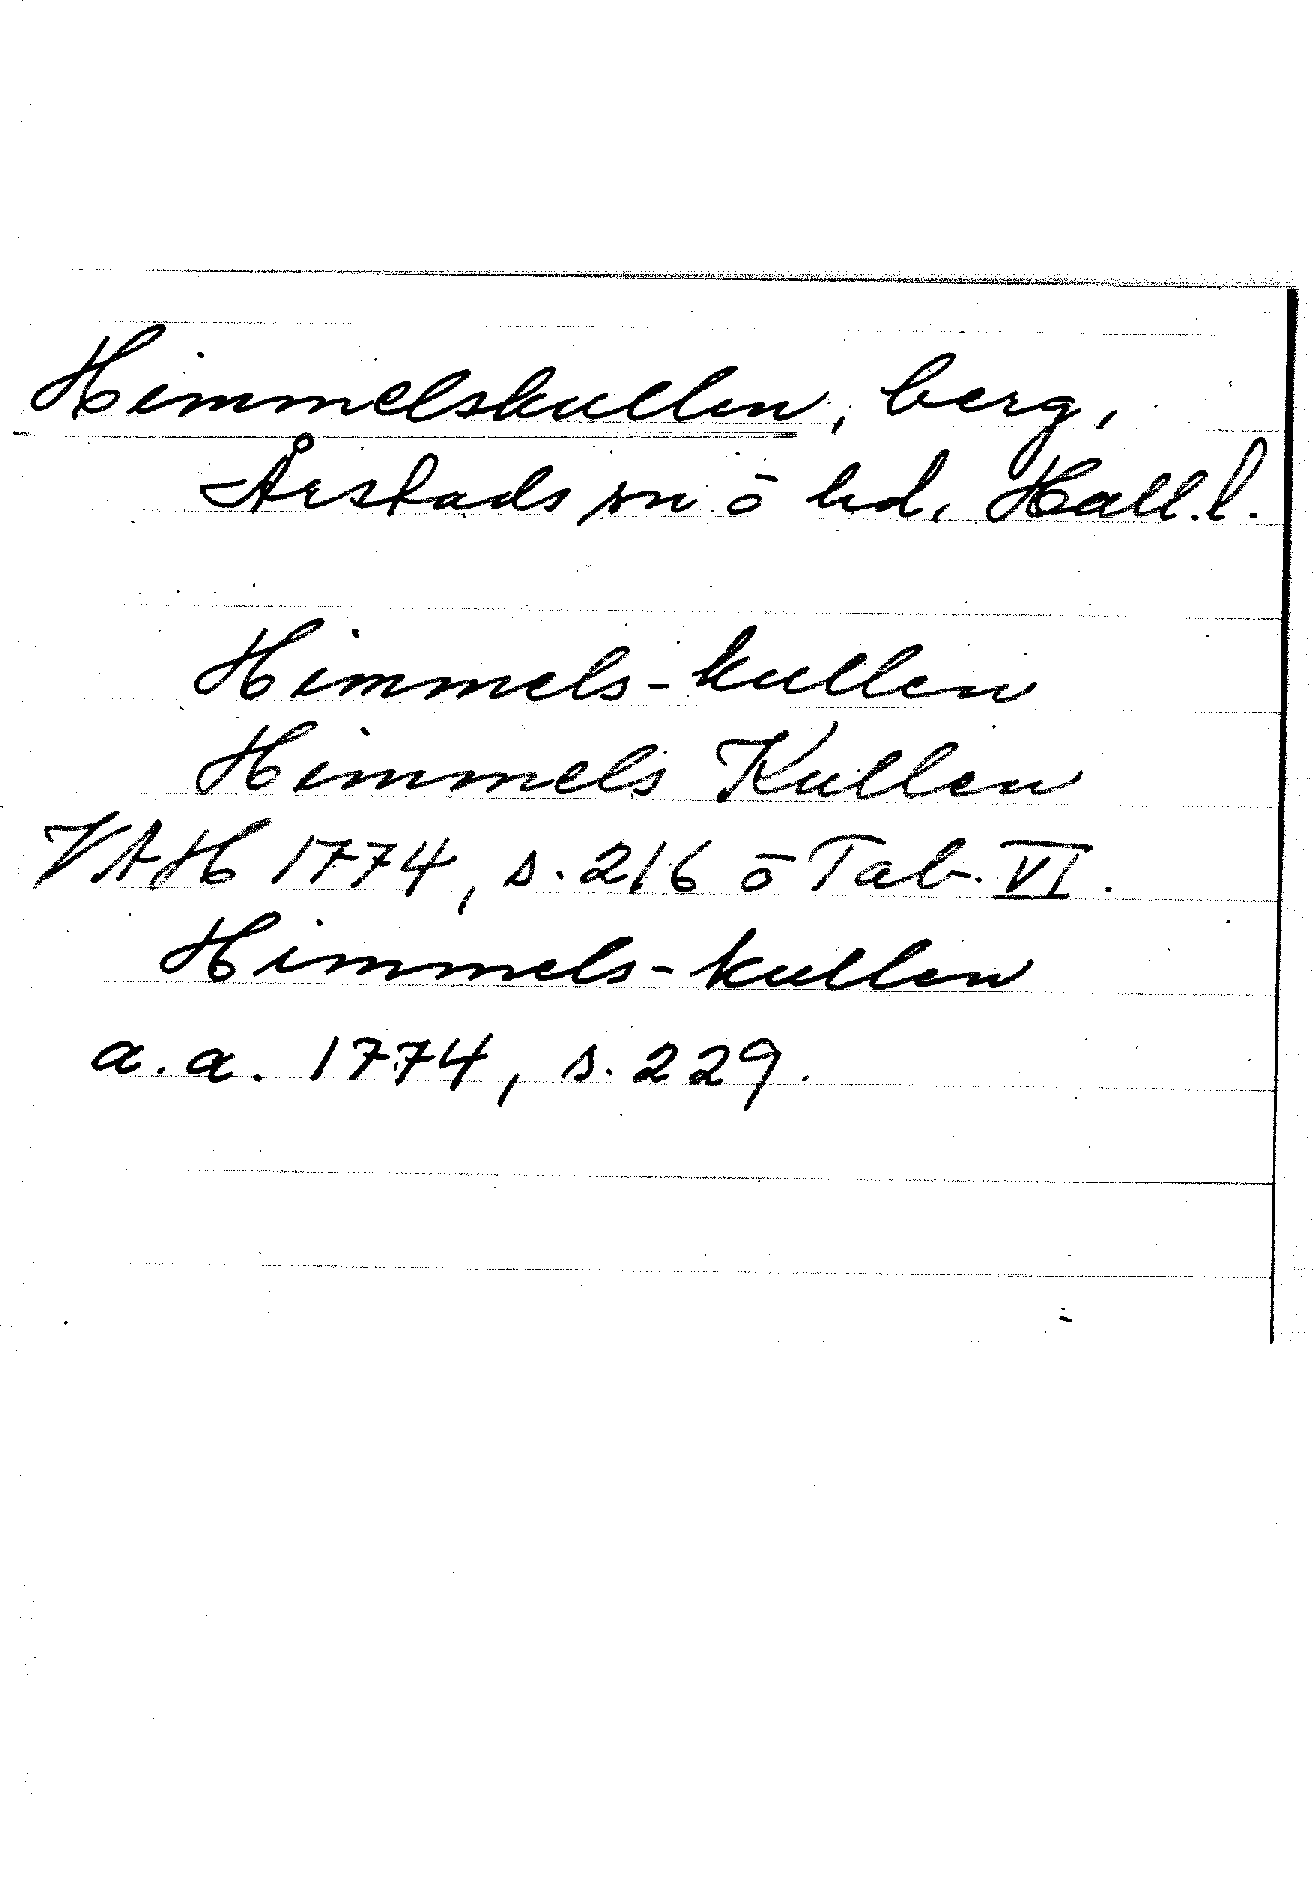 Himmelskullen, berg,
Årstads sn ō hd, Hall.l.
Himmels-kullen
Himmels Kullen
VAH 1774, s. 216 ō Tab. VI.
Himmels-kullen
a.a. 1774, s. 229.